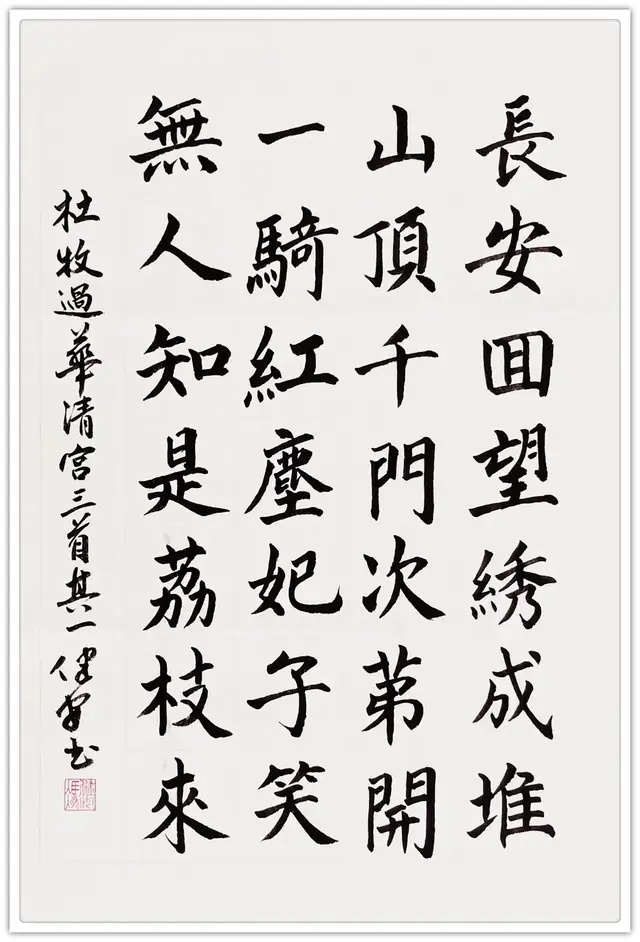 長安囬望綉成堆
山頂千門次苐開
一騎紅塵妃子笑
無人知是荔枝來
杜牧過華清宮三首其一 书